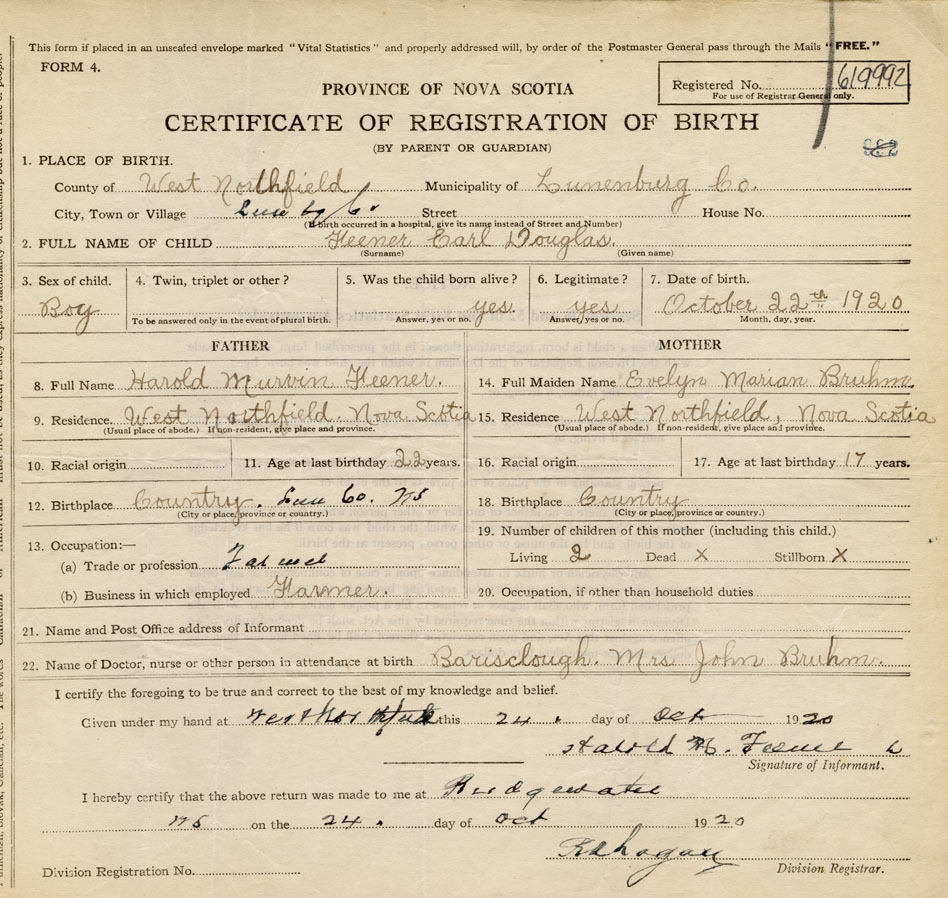 This form if placed in an unsealed envelope marked "Vital Statistics" and properly addressed will, by order of the Postmaster General pass through the Mails "FREE."
FORM 4.
Registered No. 619992
For use of Registrar General only.
PROVINCE OF NOVA SCOTIA
CERTIFICATE OF REGISTRATION OF BIRTH
(BY PARENT OR GUARDIAN)
1. PLACE OF BIRTH.
County of West Northfield Municipality of Lunenburg Co.
City, Town or Village Lunbg Co. Street House No.
(If birth occurred in a hospital, give its name instead of Street and Number)
2. FULL NAME OF CHILD Feener Earl Douglas.
(Surname) (Given name)
3. Sex of child. 4. Twin, triplet or other? 5. Was the child born alive? 6. Legitimate? 7. Date of birth.
Boy yes. yes October 22th 1920
To be answered only in the event of plural birth. Answer, yes or no. Answer, yes or no. Month, day, year.
FATHER MOTHER
8. Full Name Harold Murvin Feener. 14. Full Maiden Name Evelyn Marian Bruhm.
9. Residence West Northfield. Nova Scotia 15. Residence West Northfield, Nova Scotia
(Usual place of abode.) If non-resident, give place and province. (Usual place of abode.) If non-resident, give place and province.
10. Racial origin 11. Age at last birthday 22 years. 16. Racial origin 17. Age at last birthday 17 years.
12. Birthplace Country. Lun Co. NS 18. Birthplace Country
(City or place, province or country.) (City or place, province or country.)
19. Number of children of this mother (including this child.)
13. Occupation:—
Living 2 Dead X Stillborn X
(a) Trade or profession Farmer
(b) Business in which employed Farmer. 20. Occupation, if other than household duties
21. Name and Post Office address of Informant
22. Name of Doctor, nurse or other person in attendance at birth Barisclough. Mrs John Bruhm.
I certify the foregoing to be true and correct to the best of my knowledge and belief.
Given under my hand at West Northfield this 24. day of Oct 1920
Harold M. Feener
Signature of Informant.
I hereby certify that the above return was made to me at Bridgewater
NS on the 24. day of Oct 1920
Division Registration No. Division Registrar.